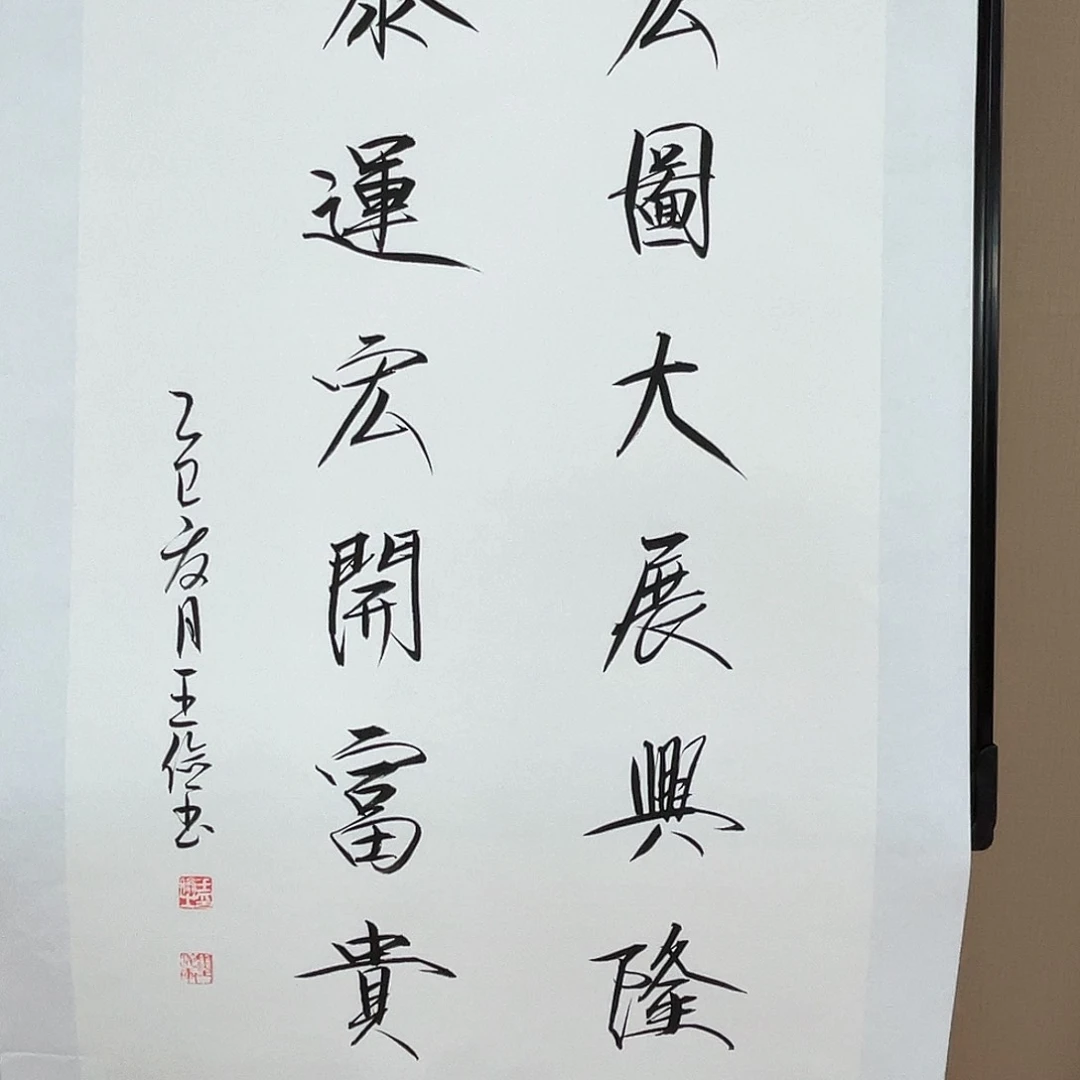 宏圖大展興隆
泰運宏開富貴
乙巳夏月王书